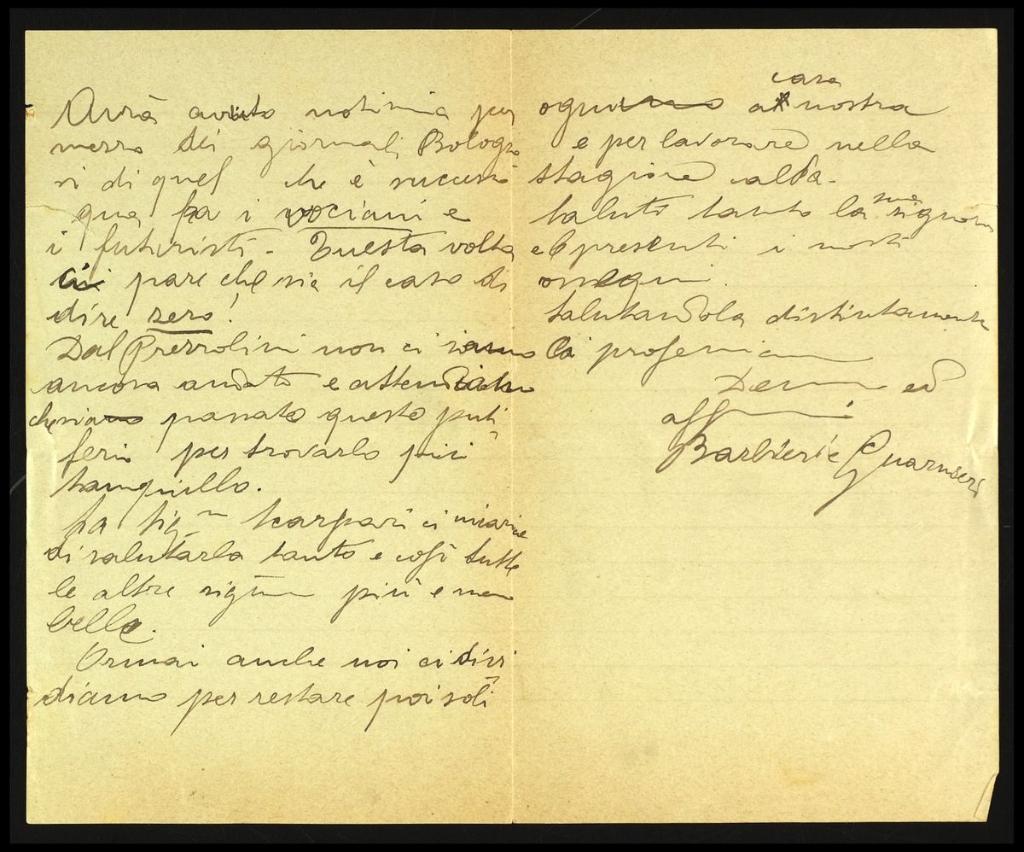 Avrà avuto notizia per
mezzo dei giornali Bologne
si di quel che è successo
qua fra i vociani e
i futuristi - Questa volta
ci pare che sia il caso di
dire zero!
Dal Prezzolini non ci siamo
ancora andati e attendiamo
che sia passato questo puti
ferio per trovarlo più
tranquillo.
La Sig.na Scarpari ci incarica
di salutarla tanto e così tutte
le altre signore più e meno
belle.
Ormai anche noi ci divi
diamo per restare poi soli
ognuno a casa nostra
e per lavorare nella
stagione calda.
Saluti tanto la sua signora
e le presenti i nostri
ossequi.
Salutandola distintamente
ci professiamo
Dev.mi ed
aff.mi
Barbieri e Guarnieri